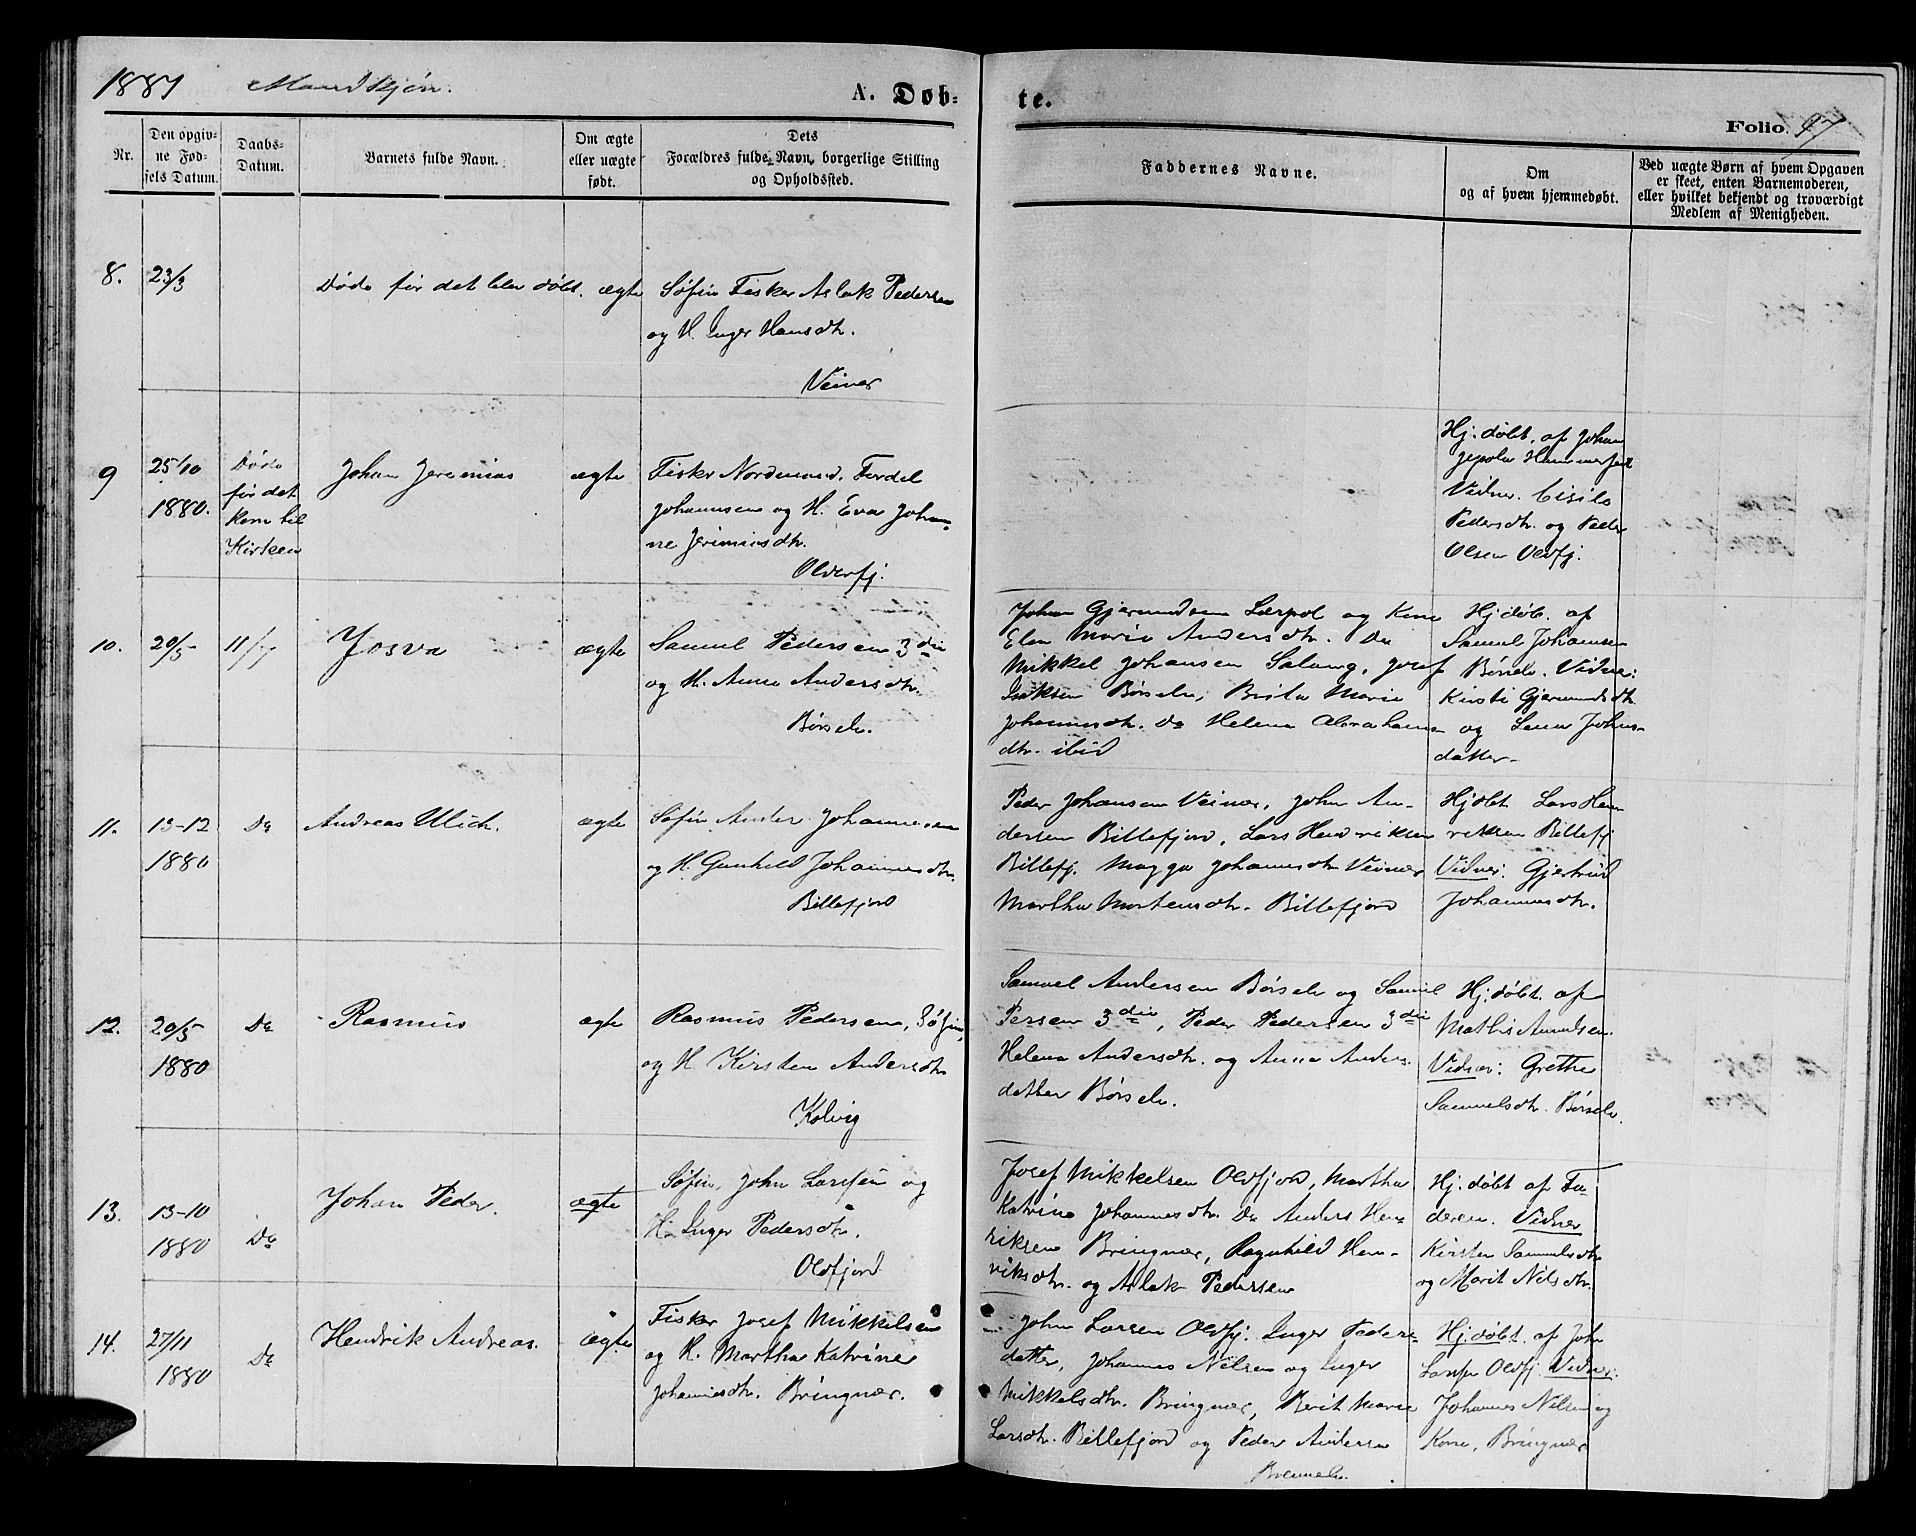 1881 Mandkjøn.
A. Døb-
te.
Folio. 97
Nr.
Den opgiv-
ne Fød-
sels Datum.
Daabs-
Datum.
Barnets fulde Navn.
Om ægte
eller uægte
født.
Dets
Forældres fulde Navn, borgerlige Stilling
og Opholdssted.
Faddernes Navne.
Om
og af hvem hjemmedøbt.
Ved uægte Børn af hvem Opgaven
er skeet, enten Barnemoderen,
eller hvilket bekjendt og troværdigt
Medlem af Menigheden.
8. 23/3
Døde før det blev døbt. ægte
Søfin Fisker Aslak Pedersen
og H. Inger Hansdtr.
Veines
9 25/10
1880.
Døde
før det
kom til
Kirken
Johan Jeremias
ægte
Fisker Nordmand. Ferdel
Johannsen og H. Eva Johan-
ne Jerimiasdtr.
Olderfj.
Hj. døbt. af Johan
Hammerfest
Vidner. Cisilo
Pedersdtr. og Peder
Olsen Oldfj.
10. 20/5 11/7
Josva
ægte
Samuel Pedersen 3die
og H. Anna Andersdtr.
Børselv.
Johan Gjermundsen Lærpol og Kone
Elen Marie Andersdtr. Da
Mikkel Johansen Josef
Isaksen Børselv, Brita Marie
Johannesdtr. Da Helena Abraham-
dtr. ibid
Hj døb. af
Samuel Johannsen
Børselv. Vidne:
Kirsti Gjermundsdtr
og Lena Johns-
datter-
11. 13-12
1880
Da
Andreas Ulich.
ægte
Søfin Anders Johannesen
og H. Gunhild Johannesdtr.
Billefjord
Peder Johansen Veines, John An-
dersen Billefjord, Lars Hendriksen
Billefj. Magga Johannesdtr Veinæs
Martha Mortensdtr. Billefjord
Hjdøbt Lars Hen
riksen Billefj
Vidner: Gjertrud
Johannesdtr.
12. 20/5
1880
Da
Rasmus
ægte
Rasmus Pedersen, Søfin,
og H Kirsten Andersdtr
Kolvig
Samuel Andersen Børselv og Samuel
Persen 3die, Peder Pedersen 3die
Helena Andersdtr. og Anna Anders
datter Børselv.
Hj. døbt af
Mathis Amundsen.
Vidner: Grethe
Samuelsdtr. Børselv.
13. 13-10
1880
Da
Johan Peder.
ægte
Søfin, John Larsen og
H. Inger Pedersdtr.
Oldfjord
Josef Mikkelsen Oldfjord, Martha
Katrina Johannesdtr. Da Anders Hen
riksen Bringnær, Ragnhild Hen-
riksdtr. og Aslak Pedersen
Hj. døbt af Fa-
deren. Vidner
Kirsten Samuelsdtr
og Marit Nilsdtr.
14. 27/11
1880
Da
Hendrik Andreas.
ægte
Fisker Josef Mikkelsen
og H. Martha Katrine
Johannesdtr. Bringnær.
John Larsen Oldfj. Inger Peders-
datter, Johannes Nilsen og Inger
Mikkelsdtr. Bringnær, Berit Marie
Larsdtr. Billefjord og Peder Andersen
Brennelv.
Hj. døbt. af John
Larsen Oldfj. Vidner:
Johannes Nilsen og
Kone, Bringnær